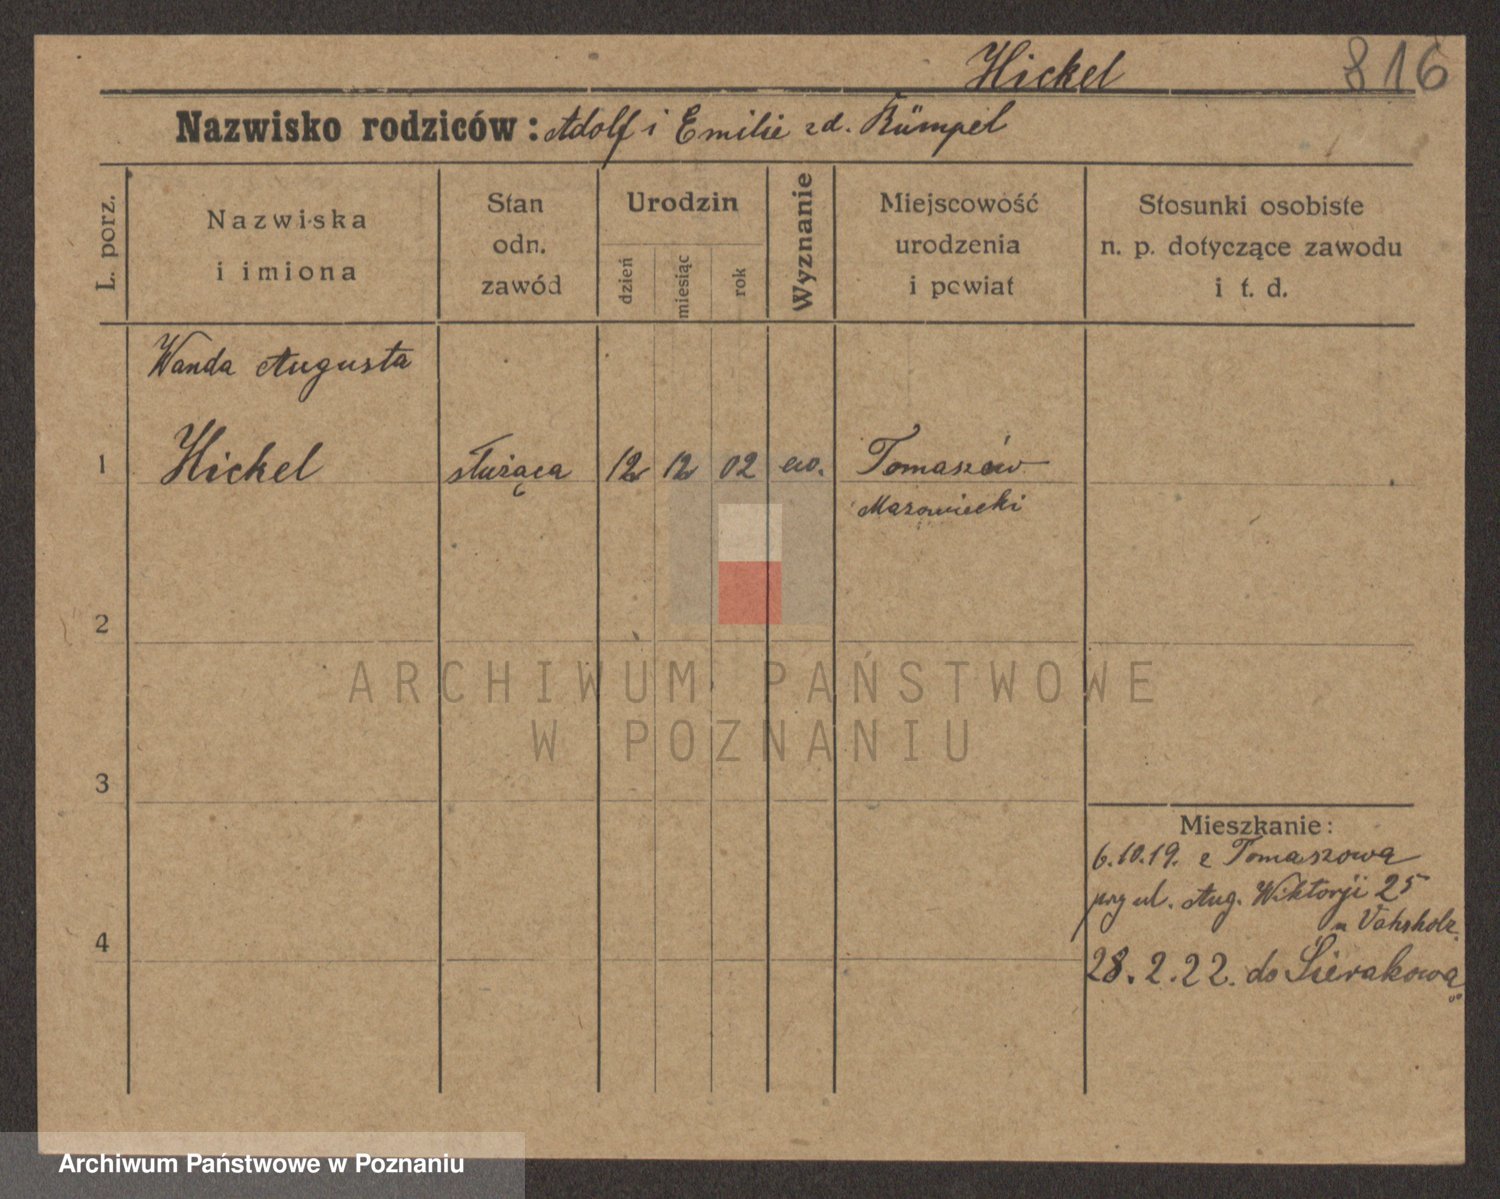 Hickel 816
Nazwisko rodziców: Adolf i Emilie zd. Rümpel
L. porz.
Nazwiska
i imiona
Stan
odn.
zawód
Urodzin
dzień
miesiąc
rok
Wyznanie
Miejscowość
urodzenia
i powiat
Stosunki osobiste
n. p. dotyczące zawodu
i t. d.
Wanda Augusta
1 Hickel służąca 12 12 02 ew. Tomaszów
Mazowiecki
2
ARCHIWUM PAŃSTWOWE
W POZNANIU
3
Mieszkanie:
6.10.19. z Tomaszowa
przy ul. Aug. Wiktorji 25
u Vahrholz
4
28.2.22. do Sierakowa
Archiwum Państwowe w Poznaniu